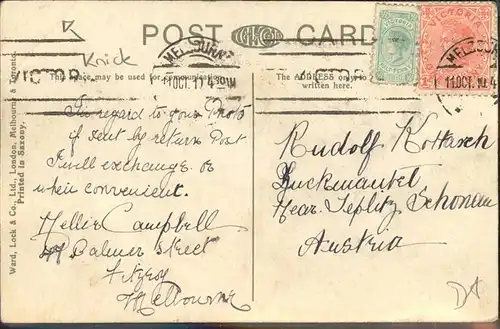 POST CARD
Knick
VICTORIA
VICTORIA
MELBOURNE
11 OCT. 11 4 30 PM
MELBO
11 OCT. 10 4
This space may be used for communication
The ADDRESS only to be
written here.
In regard to your Photo
if sent by return Post
I will exchange or
when convenient.
Nellie Campbell
Palmer Street
Fitzroy
Melbourne
Rudolf Kottasch
Zuckmantel
Near Teplitz Schonau
Austria
Ward, Lock & Co., Ltd., London, Melbourne & Toronto.
Printed in Saxony.